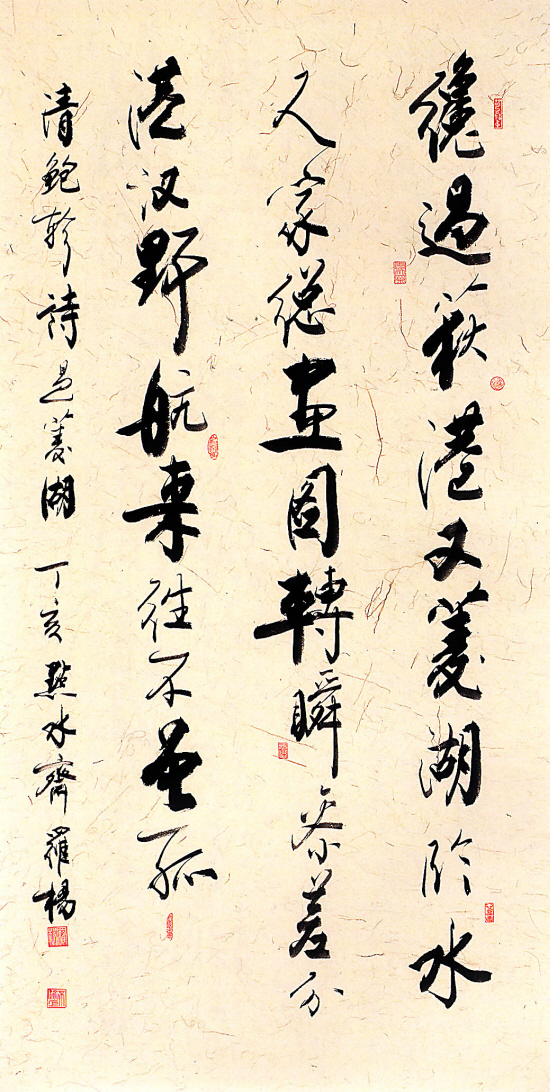 纔過荻港又菱湖臨水
人家總畫圖轉瞬參差分
港汊野航來往不孤
清鮑軫詩過菱湖 丁亥 點水齋羅楊